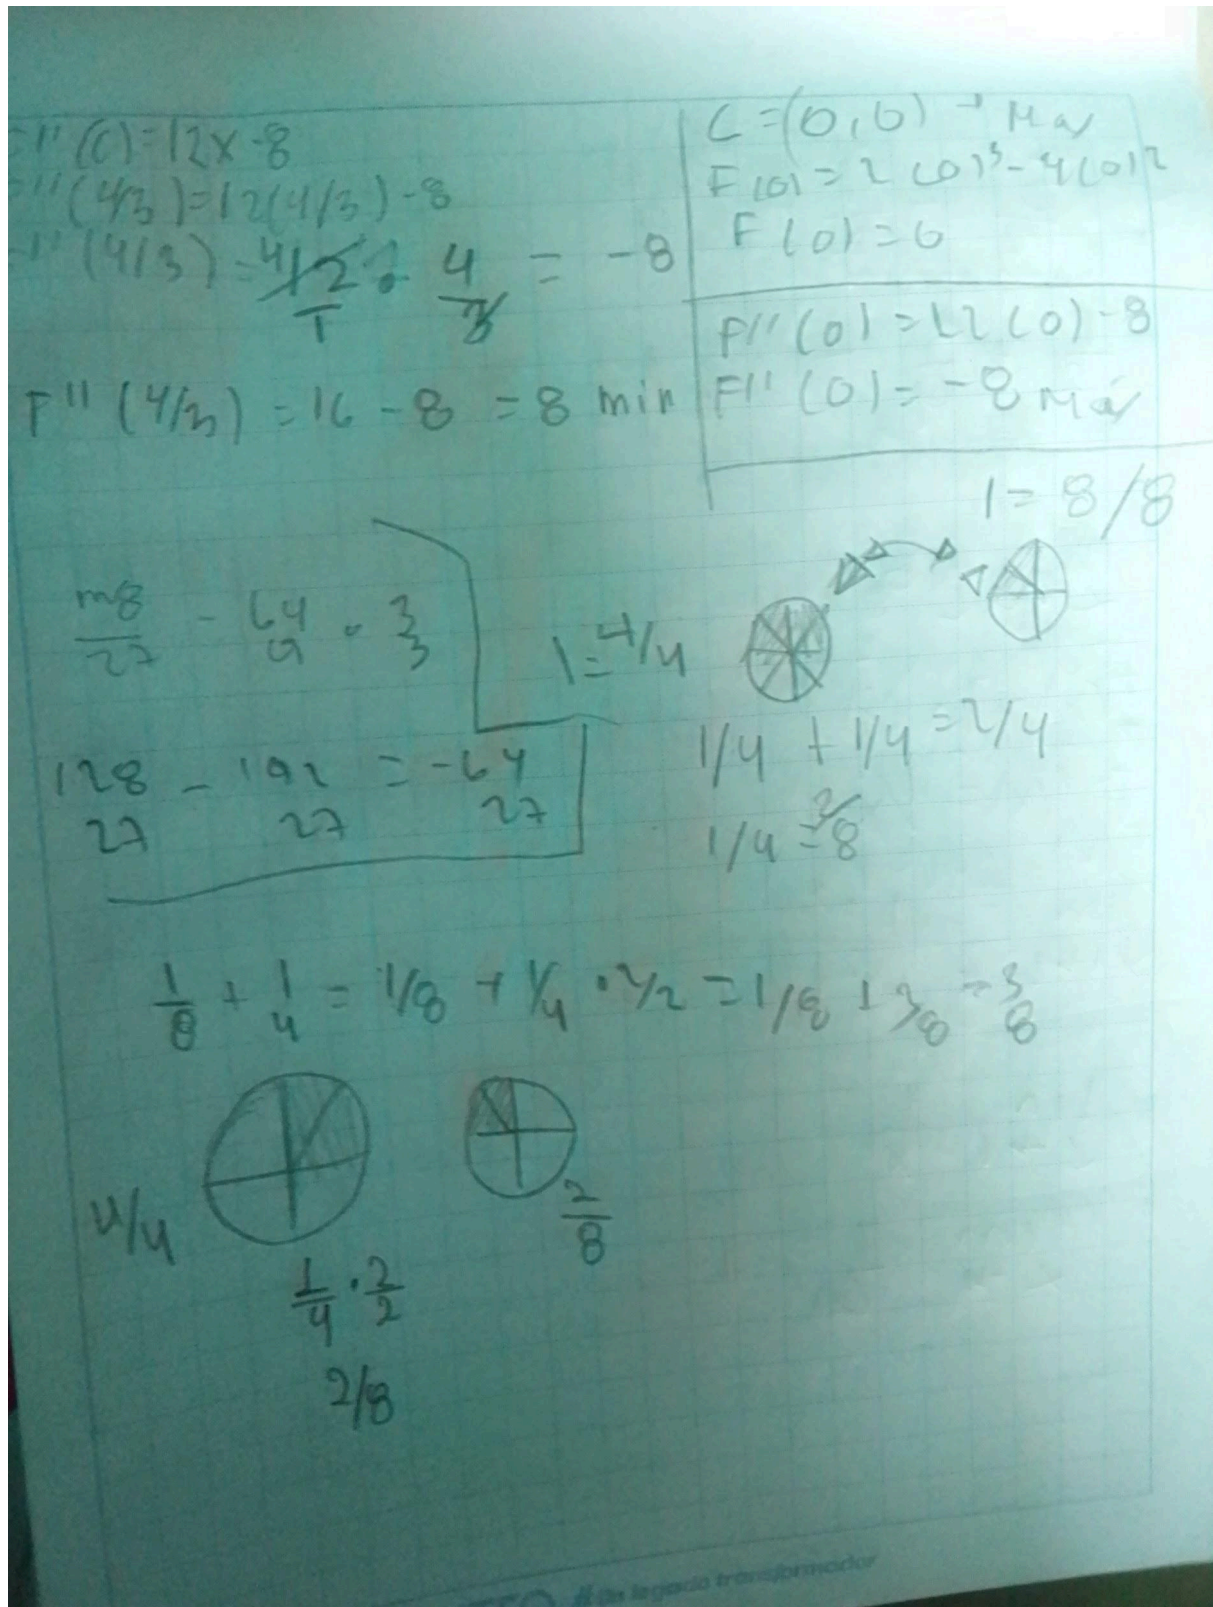 F''(C)=12x-8
F''(4/3)=12(4/3)-8
F''(4/3)=4 12/1 · 4/3 = -8
F''(4/3)=16-8=8 min
C=(0,0) → Max
F(0)=2(0)³-4(0)²
F(0)=0
F''(0)=12(0)-8
F''(0)=-8 Max
1=8/8
m8/27 - 64/9 · 3/3
1=4/4
128/27 - 192/27 = -64/27
1/4 + 1/4 = 2/4
1/4 = 2/8
1/8 + 1/4 = 1/8 + 1/4 · 2/2 = 1/8 + 2/8 = 3/8
4/4
2/8
1/4 · 2/2
2/8
#Un legado transformador